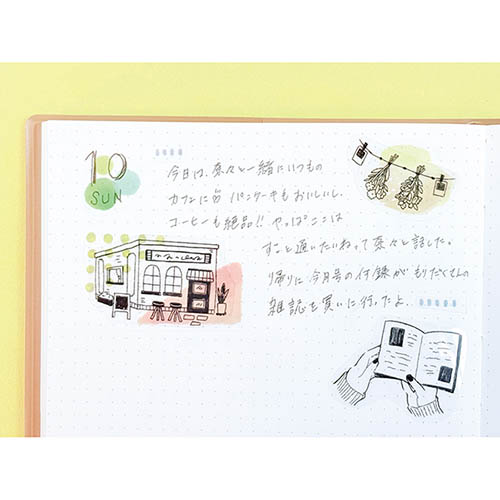 10
SUN
今日は、奈々と一緒にいつもの
カフェに パンケーキもおいしいし、
コーヒーも絶品!! やっぱここは
ずっと通いたいねって奈々と話した。
帰りに今月号の付録がもりだくさんの
雑誌を買いに行ったよ。